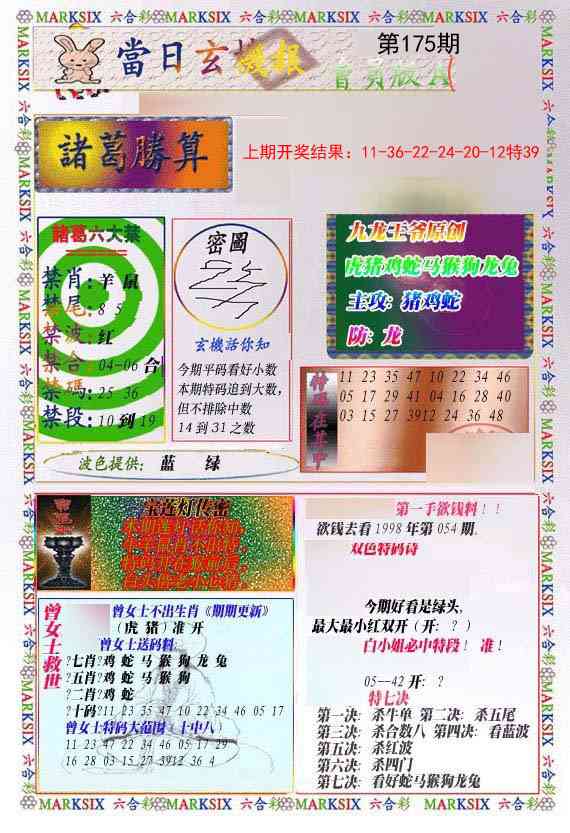 MARKSIX 六合彩 MARKSIX 六合彩 MARKSIX 六合彩 MARKSIX 六合彩 MARKSIX
當日玄機報
第175期
諸葛勝算
上期开奖结果：11-36-22-24-20-12特39
諸葛六大禁
禁肖:羊 鼠
禁尾:8 5
禁波:红
禁合:04-06 合
禁碼:25 36
禁段:10到19
密圖
玄機話你知
今期平码看好小数
本期特码追到大数，
但不排除中数
14到31之数
九龙王爷原创
虎猪鸡蛇马猴狗龙兔
主攻: 猪鸡蛇
防: 龙
11 23 35 47 10 22 34 46
05 17 29 41 04 16 28 40
03 15 27 3912 24 36 48
波色提供: 蓝 绿
宝莲灯传密
曾女士救世
曾女士不出生肖《期期更新》
(虎 猪)准 开
曾女士送码料:
?七肖?鸡 蛇 马 猴 狗 龙 兔
?五肖?鸡 蛇 马 猴 狗
?二肖?鸡 蛇
?十码?11 23 35 47 10 22 34 46 05 17
曾女士特码大范围〈十中八〉
11 23 47 22 34 46 05 17 29
16 28 03 15 27 3912 36 4
第一手欲钱料！！
欲钱去看1998年第054期。
双色特码诗
今期好看是绿头,
最大最小红双开(开: ？)
白小姐必中特段！ 准！
05--42 开: ？
特七决
第一决: 杀牛单 第二决: 杀五尾
第三决: 杀合数八 第四决: 看蓝波
第五决: 杀红波
第六决: 杀四门
第七决: 看好蛇马猴狗龙兔
MARKSIX 六合彩 MARKSIX 六合彩 MARKSIX 六合彩 MARKSIX 六合彩 MARKSIX